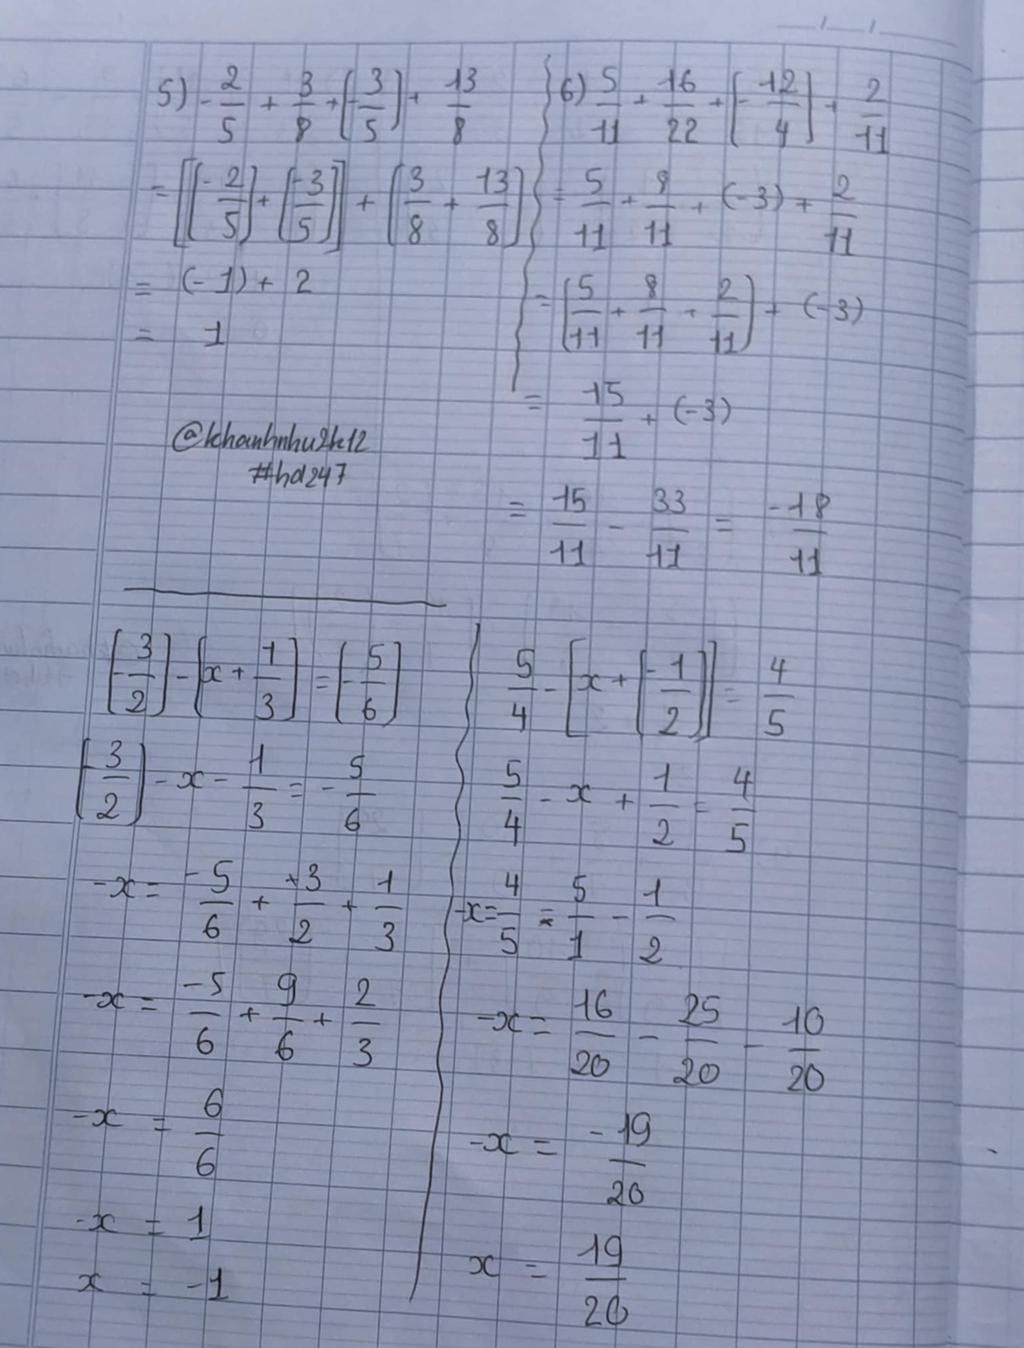 5) -2/5 + 3/8 + (-3/5) + 13/8
= [(-2/5) + (-3/5)] + (3/8 + 13/8)
= (-1) + 2
= 1
@khanhnhu2k12
#hd247
6) 5/11 + 16/22 + (-12/4) + 2/11
= 5/11 + 8/11 + (-3) + 2/11
= (5/11 + 8/11 + 2/11) + (-3)
= 15/11 + (-3)
= 15/11 - 33/11 = -18/11
(-3/2) - (x + 1/3) = (-5/6)
(-3/2) - x - 1/3 = -5/6
-x = -5/6 + +3/2 + 1/3
-x = -5/6 + 9/6 + 2/3
-x = 6/6
-x = 1
x = -1
5/4 - [x + (-1/2)] = 4/5
5/4 - x + 1/2 = 4/5
-x = 4/5 = 5/1 - 1/2
-x = 16/20 - 25/20 - 10/20
-x = -19/20
x = 19/20